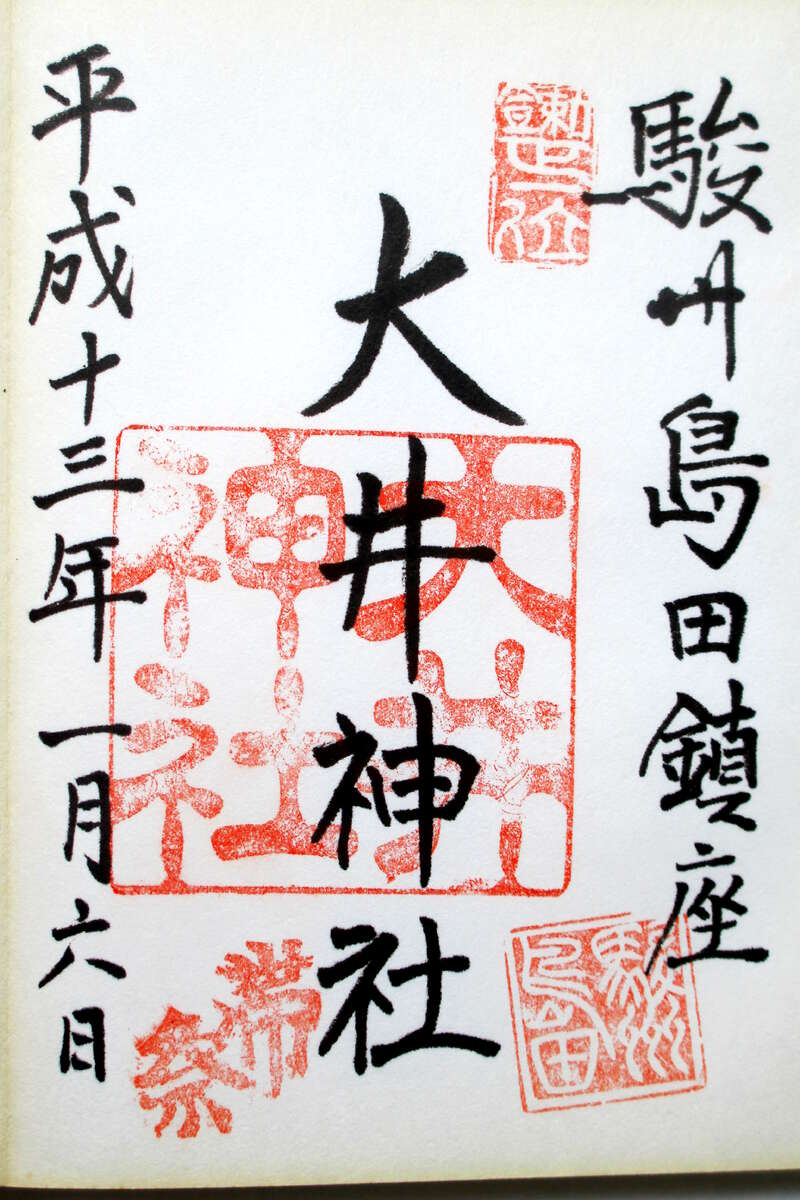 駿州島田鎮座
勅宣正一位
駿州島田
大井神社
大井神社
帯祭
平成十三年一月六日